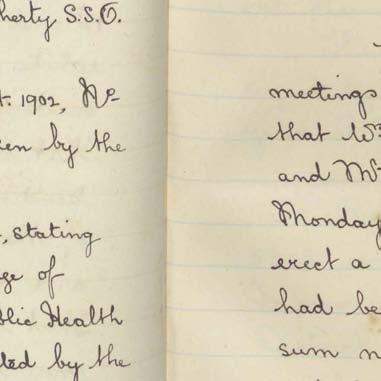 herty S.S.O.
t. 1902, No
en by the
, stating
ge of
blic Health
ted by the
meetings
that Wm
and Mr
Monday
erect a
had be
sum n